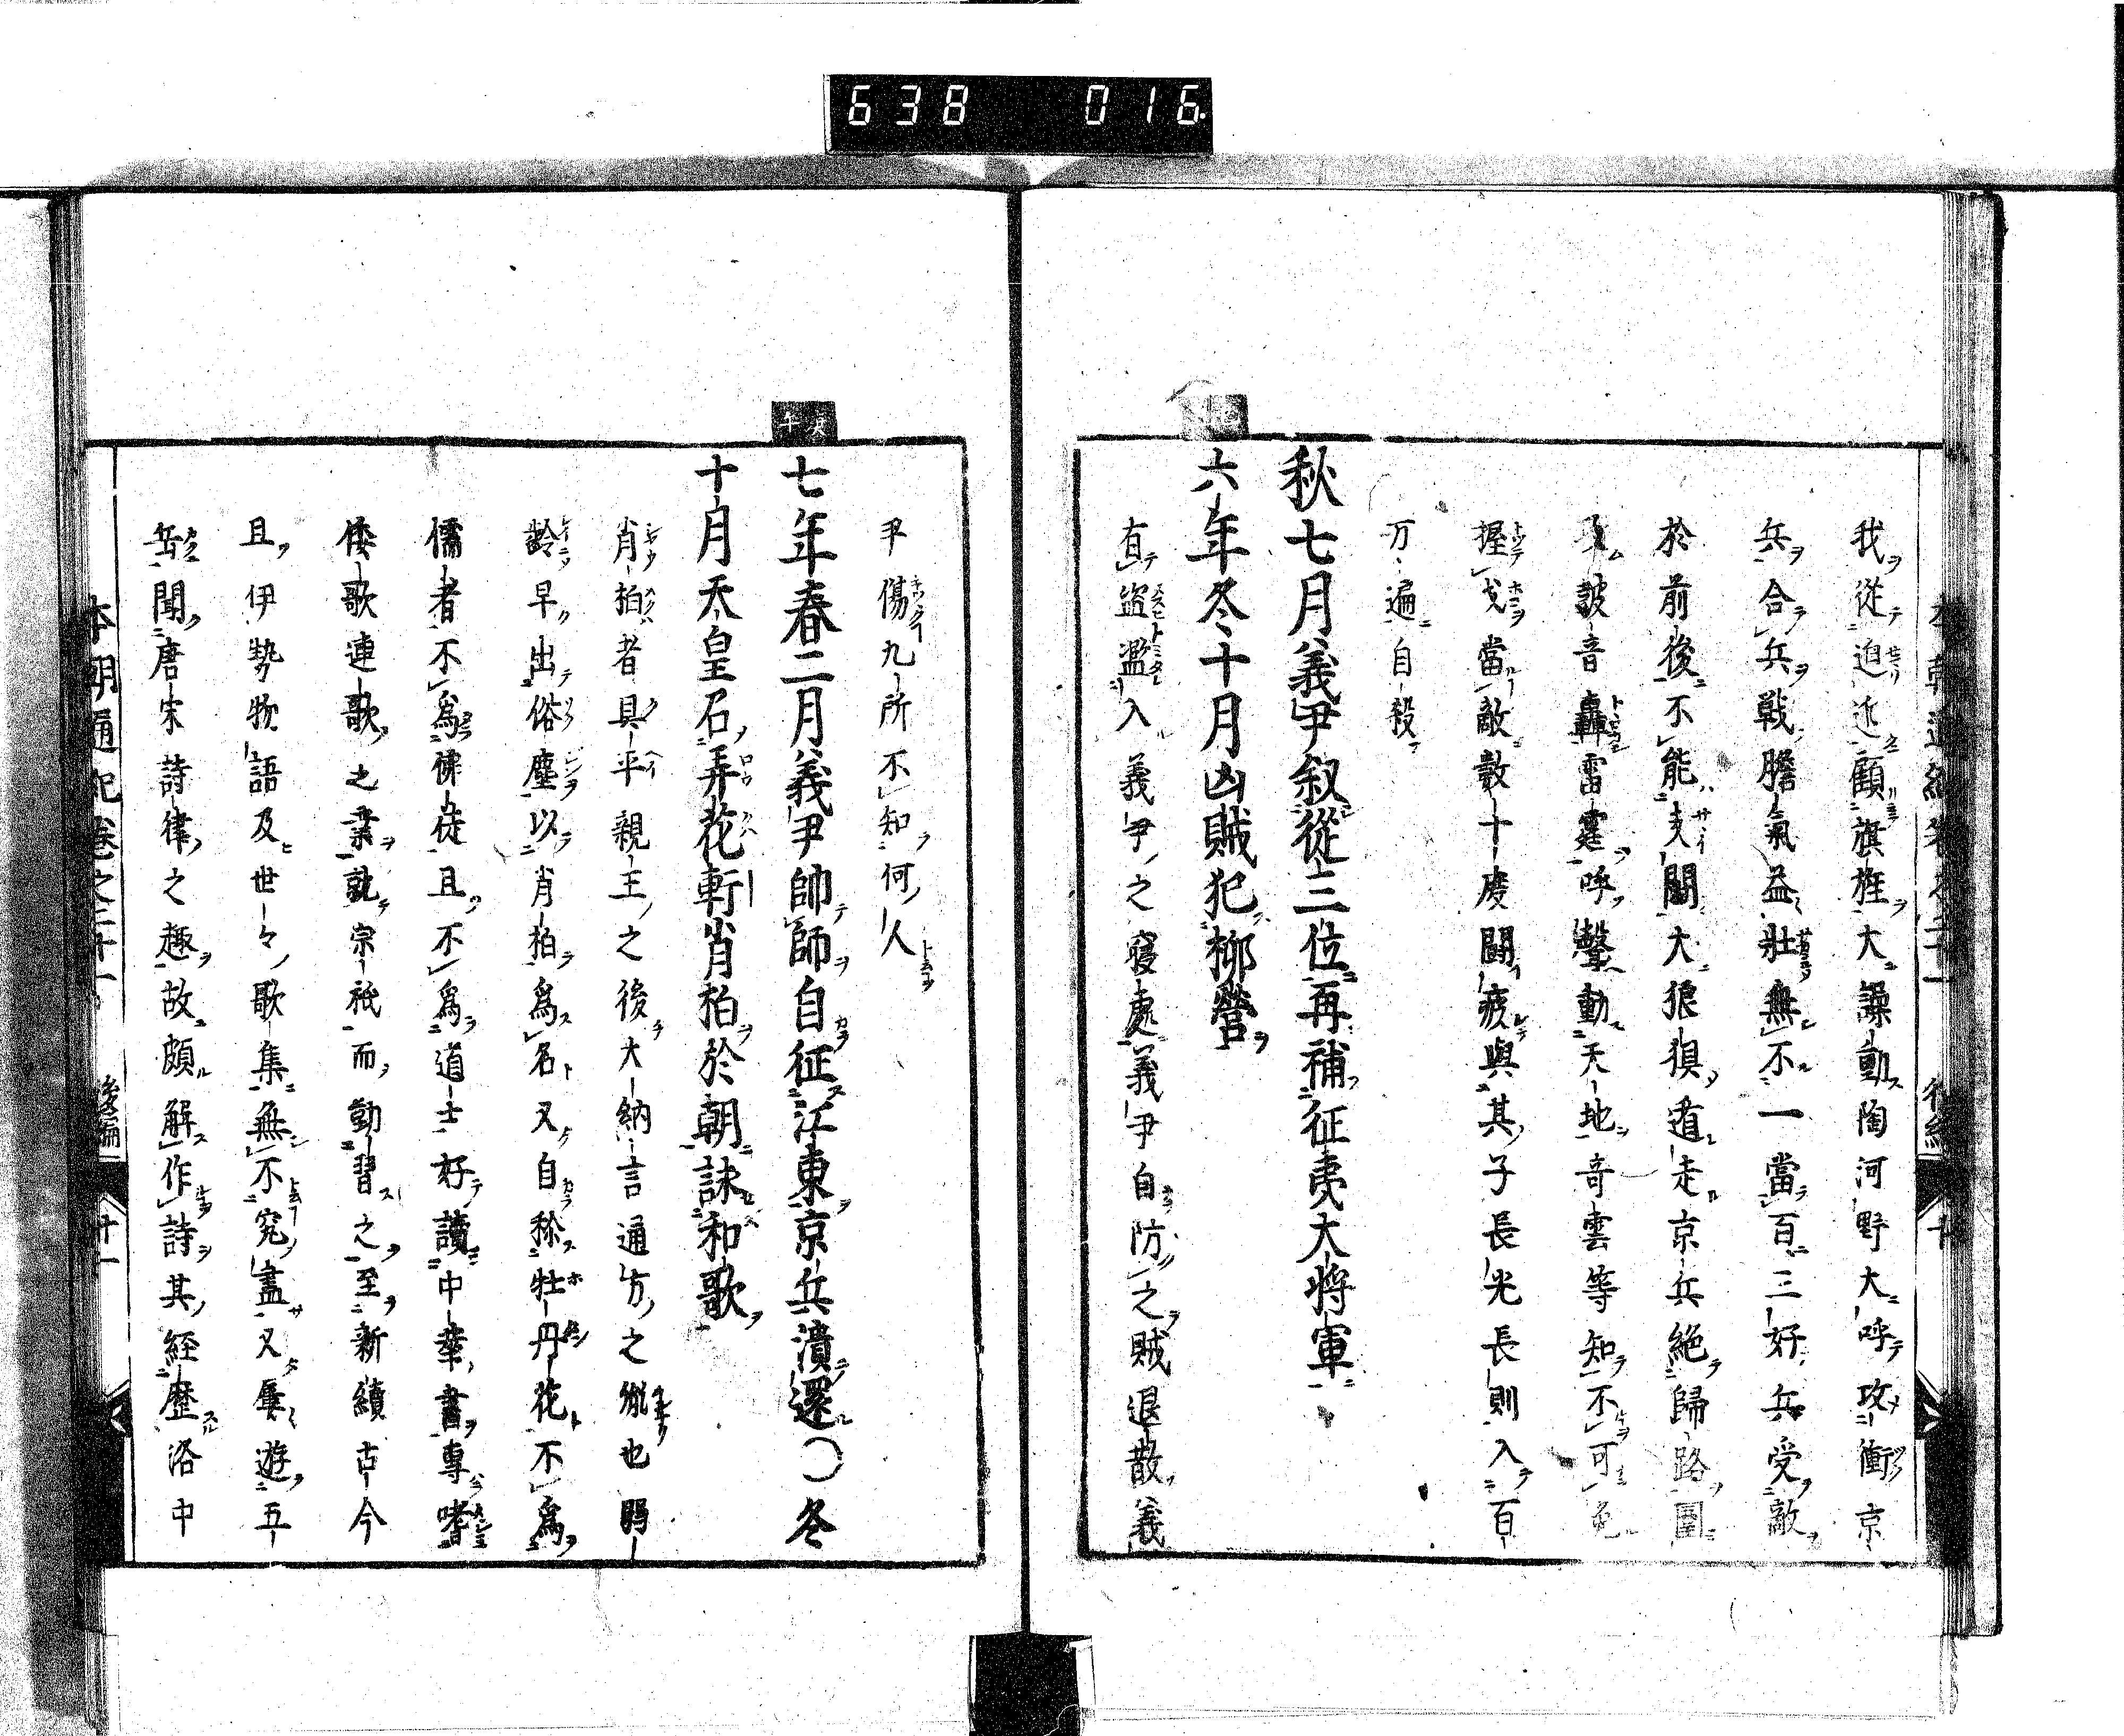 638 016
我從迫近顧旗旌大譟動陶河野大呼攻衝京
兵合兵戰膽氣益壯無不一當百三好兵受敵
於前後不能支鬪大狼狽遁走京兵絕歸路圍
鼓音轟雷霆呼聲動天地奇雲等知不可免
握戈當敵數十度鬪疲與其子長光長則入百
万遍自殺
秋七月義尹叙從三位再補征夷大将軍
六年冬十月凶賊犯柳營
有盜濫入義尹之寢處義尹自防之賊退散義
尹傷九所不知何人
庚午
七年春二月義尹帥師自征江東京兵潰還〇冬
十月天皇召弄花軒肖柏於朝詠和歌
肖柏者具平親王之後大納言通方之胤也
齡早出俗塵以肖柏爲名又自稱牡丹花不爲
儒者不爲佛徒且不爲道士好讀中華書專嗜
倭歌連歌之業就宗祇而勤習之至新續古今
且伊勢物語及世々歌集無不究盡又屢遊五
岳聞唐宋詩律之趣故頗解作詩其經歷洛中
本朝通紀卷之二十一 後編 廿一